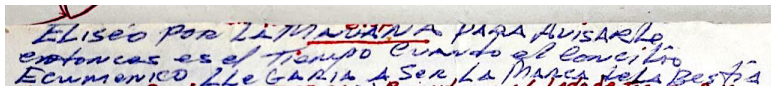 ELISEO POR LA MAÑANA PARA AVISARLE
entonces es el Tiempo Cuando el Concilio
Ecumenico LLEGARIA A SER LA MARCA de LA BESTIA